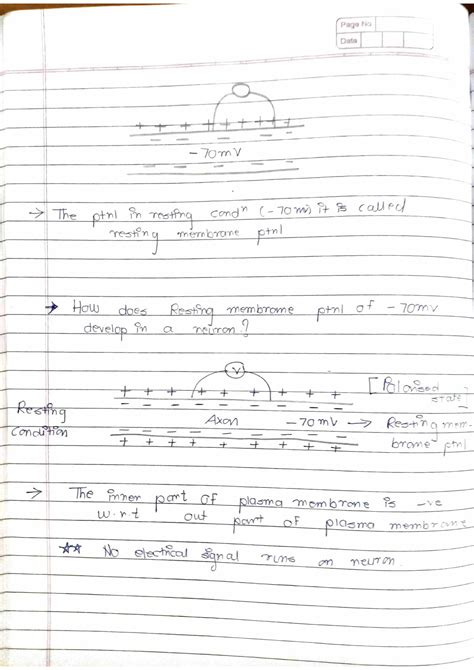 Page No
Date
+ + + + + + + + +
– – – – – –
- 70mV
– – – – – –
→ The ptnl in resting condⁿ (-70mv) it is called
resting membrane ptnl
→ How does Resting membrane ptnl of -70mv
develop in a neuron?
V
[Polarised
state]
+ + + + + + + + +
– – – – – – – – –
Resting
Condition
Axon -70mV → Resting mem-
brane ptnl
– – – – – – – – –
+ + + + + + + + +
→ The inner part of plasma membrane is -ve
w.r.t out part of plasma membrane
** No electrical signal runs on neuron.